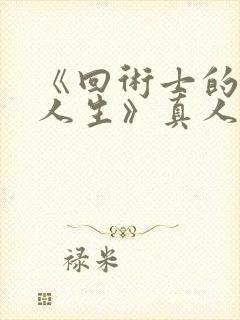 《回術士的
人生》真人
禄米